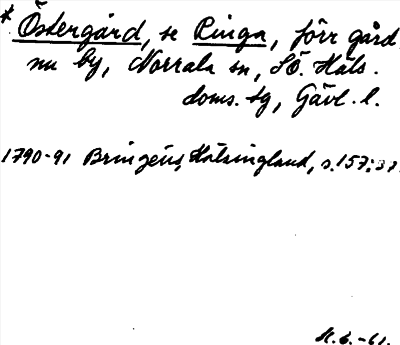 * Östergård, se Ringa, förr gård
nu by, Norrala sn, Sö. Häls.
doms. tg, Gävl. l.
1790-91 Bringéus, Hälsingland, s. 157:37
-61.